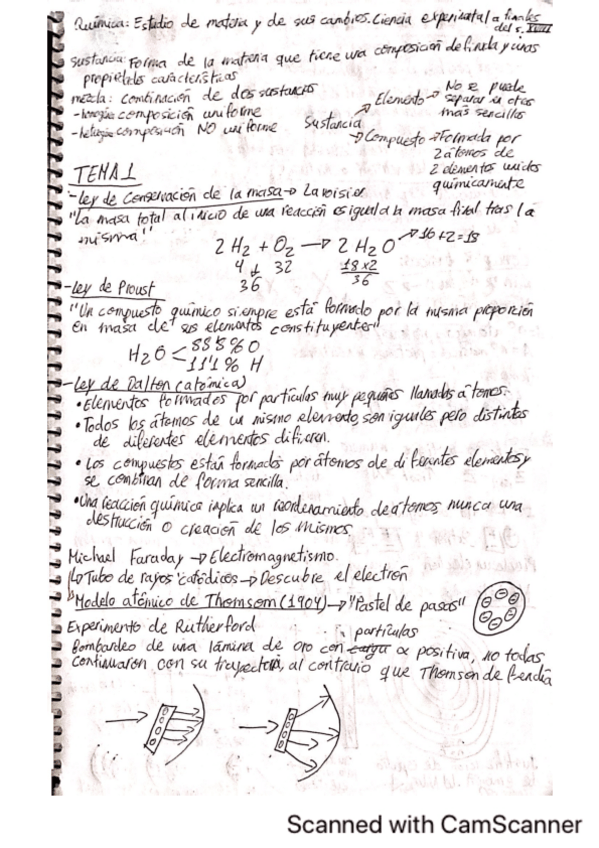 Química: Estudio de materia y de sus cambios. Ciencia experimetal a finales
del s. XVIII
Sustancia: Forma de la materia que tiene una composición definida y unas
propiedades características
mezcla: combinación de dos sustancias
- homogénea composición uniforme
- heterogénea composición NO uniforme
Sustancia
Elemento → No se puede
separar en otras
más sencillas
Compuesto → Formada por
2 átomos de
2 elementos unidos
químicamente
TEMA 1
- Ley de Conservación de la masa → Lavoisier
"La masa total al inicio de una reacción es igual a la masa final tras la
misma"
2 H2 + O2 → 2 H2O → 16+2=18
4 + 32 18x2
36 36
- Ley de Proust
"Un compuesto químico siempre está formado por la misma proporción
en masa de sus elementos constituyentes"
H2O < 88'8% O
11'1% H
- Ley de Dalton (atómica)
• Elementos formados por partículas muy pequeñas llamados átomos.
• Todos los átomos de un mismo elemento, son iguales pero distintos
de diferentes elementos difieren.
• Los compuestos están formados por átomos de diferentes elementos y
se combinan de forma sencilla.
• Una reacción química implica un reordenamiento de átomos nunca una
destrucción o creación de los mismos
Michael Faraday → Electromagnetismo.
↳ Tubo de rayos catódicos → Descubre el electrón
Modelo atómico de Thomsom (1904) → "Pastel de pasas"
Experimento de Rutherford
partículas
Bombardeo de una lámina de oro con carga α positiva, no todas
continuaron con su trayectoria, al contrario que Thomson defendía
Scanned with CamScanner